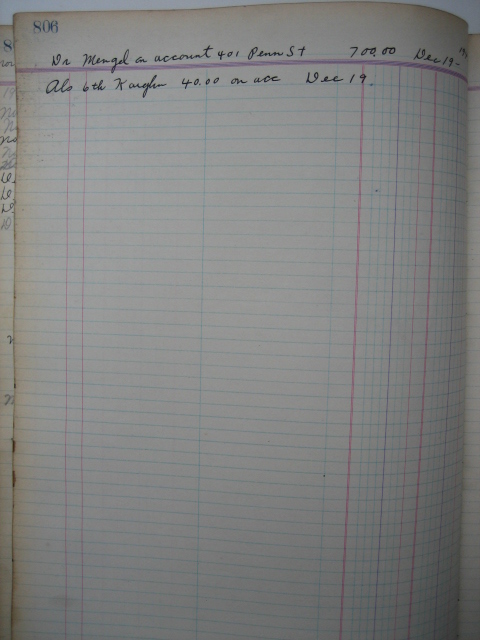 806
Dr Mengel on account 401 Penn St 700.00 Dec 19-
Als 6th Kaighn 40.00 on acc Dec 19.